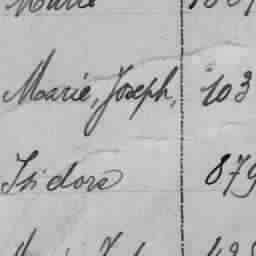 Marie
Marie, Joseph, 103
Isidore 879